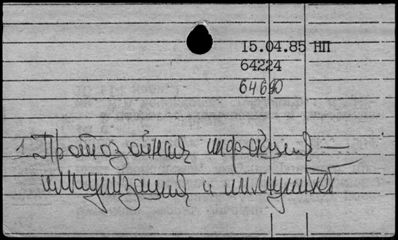 15.04.85 НП
64224
64690
1. Протозойная инфекция —
иммунизация и иммунитет